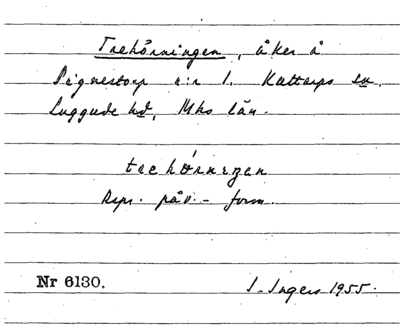 Trehörningen, åker å
Signestorp n:r 1. Kattarps sn.
Luggude hd, Mhs län.
trehö́rnıŋen
Repr. påv. - form.
Nr 6130.
I. Ingers 1955.